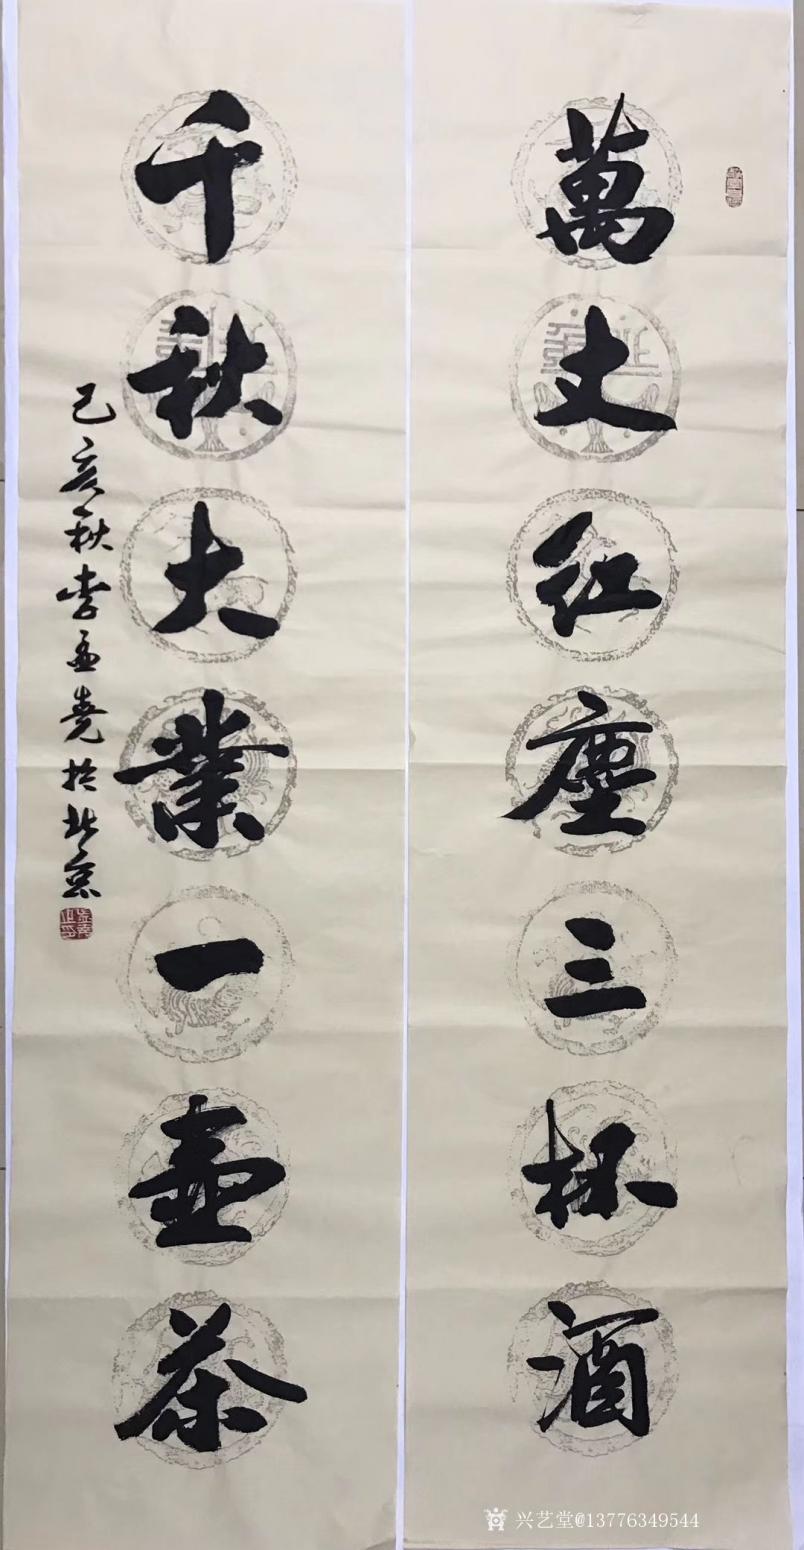 萬丈红塵三杯酒
千秋大業一壺茶
己亥秋李孟堯於北京
兴艺堂@13776349544